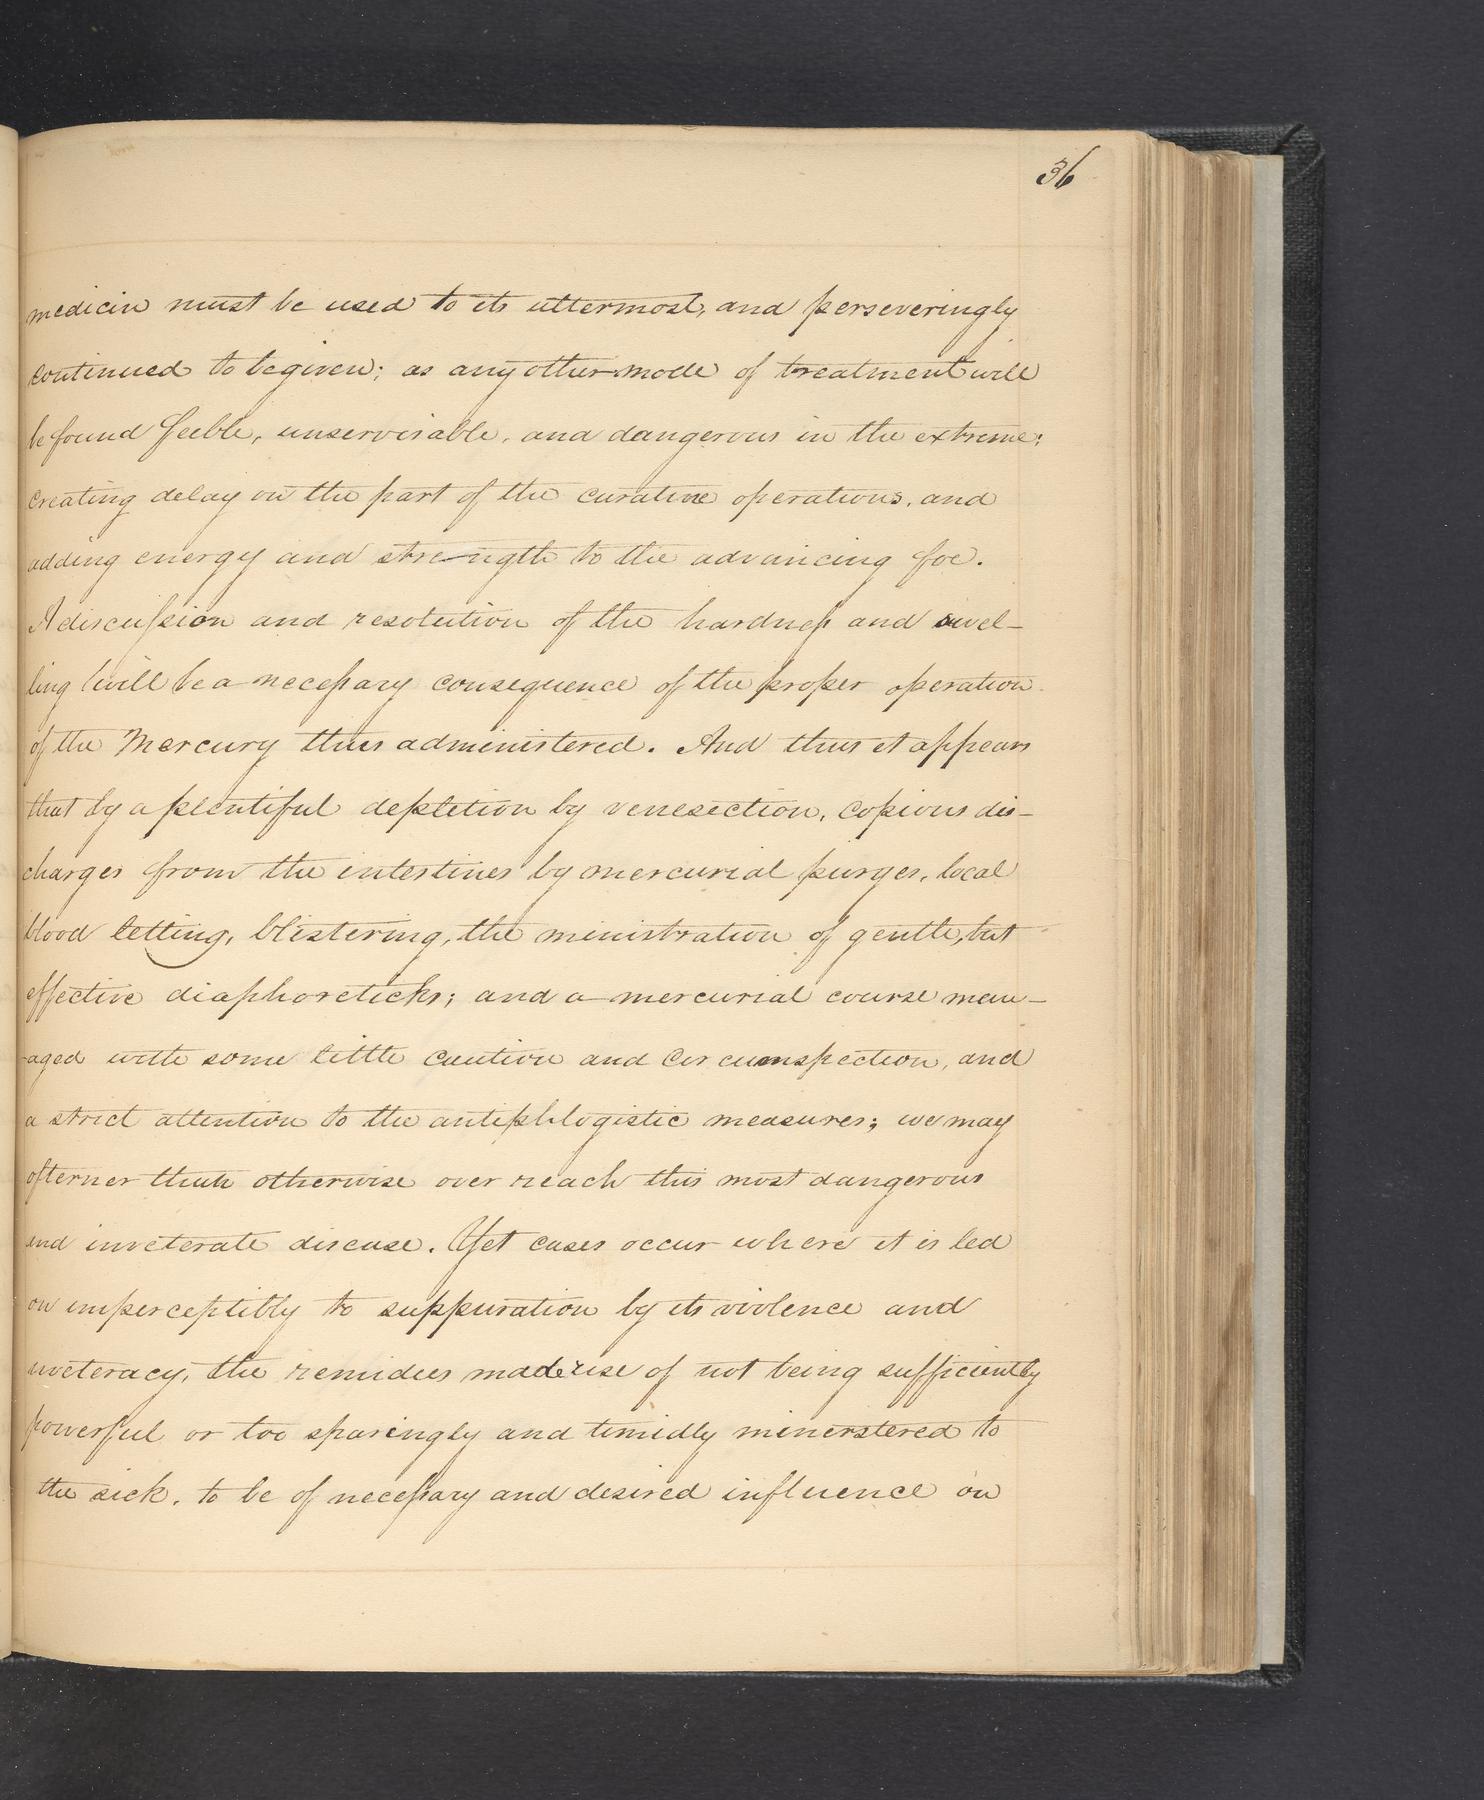 36
medicin must be used to its uttermost, and perseveringly
continued to be given; as any other mode of treatment will
be found feeble, unservisable, and dangerous in the extreme;
creating delay on the part of the curative operations, and
adding energy and strength to the advancing foe.
A discussion and resolution of the hardness and swel-
ling will be a necessary consequence of the proper operation
of the Mercury thus administered. And thus it appears
that by a plentiful depletion by venesection, copious dis-
charges from the intestines by mercurial purges, local
blood letting, blistering, the ministration of gentle, but
effective diaphoreticks; and a mercurial course man-
-aged with some little caution and circumspection, and
a strict attention to the antiphlogistic measures; we may
ofterner than otherwise over reach this most dangerous
and inveterate disease. Yet cases occur where it is led
on imperceptibly to suppuration by its violence and
inveteracy, the remidies made use of not being sufficiently
powerful or too sparingly and timidly minerstered to
the sick, to be of necessary and desired influence on